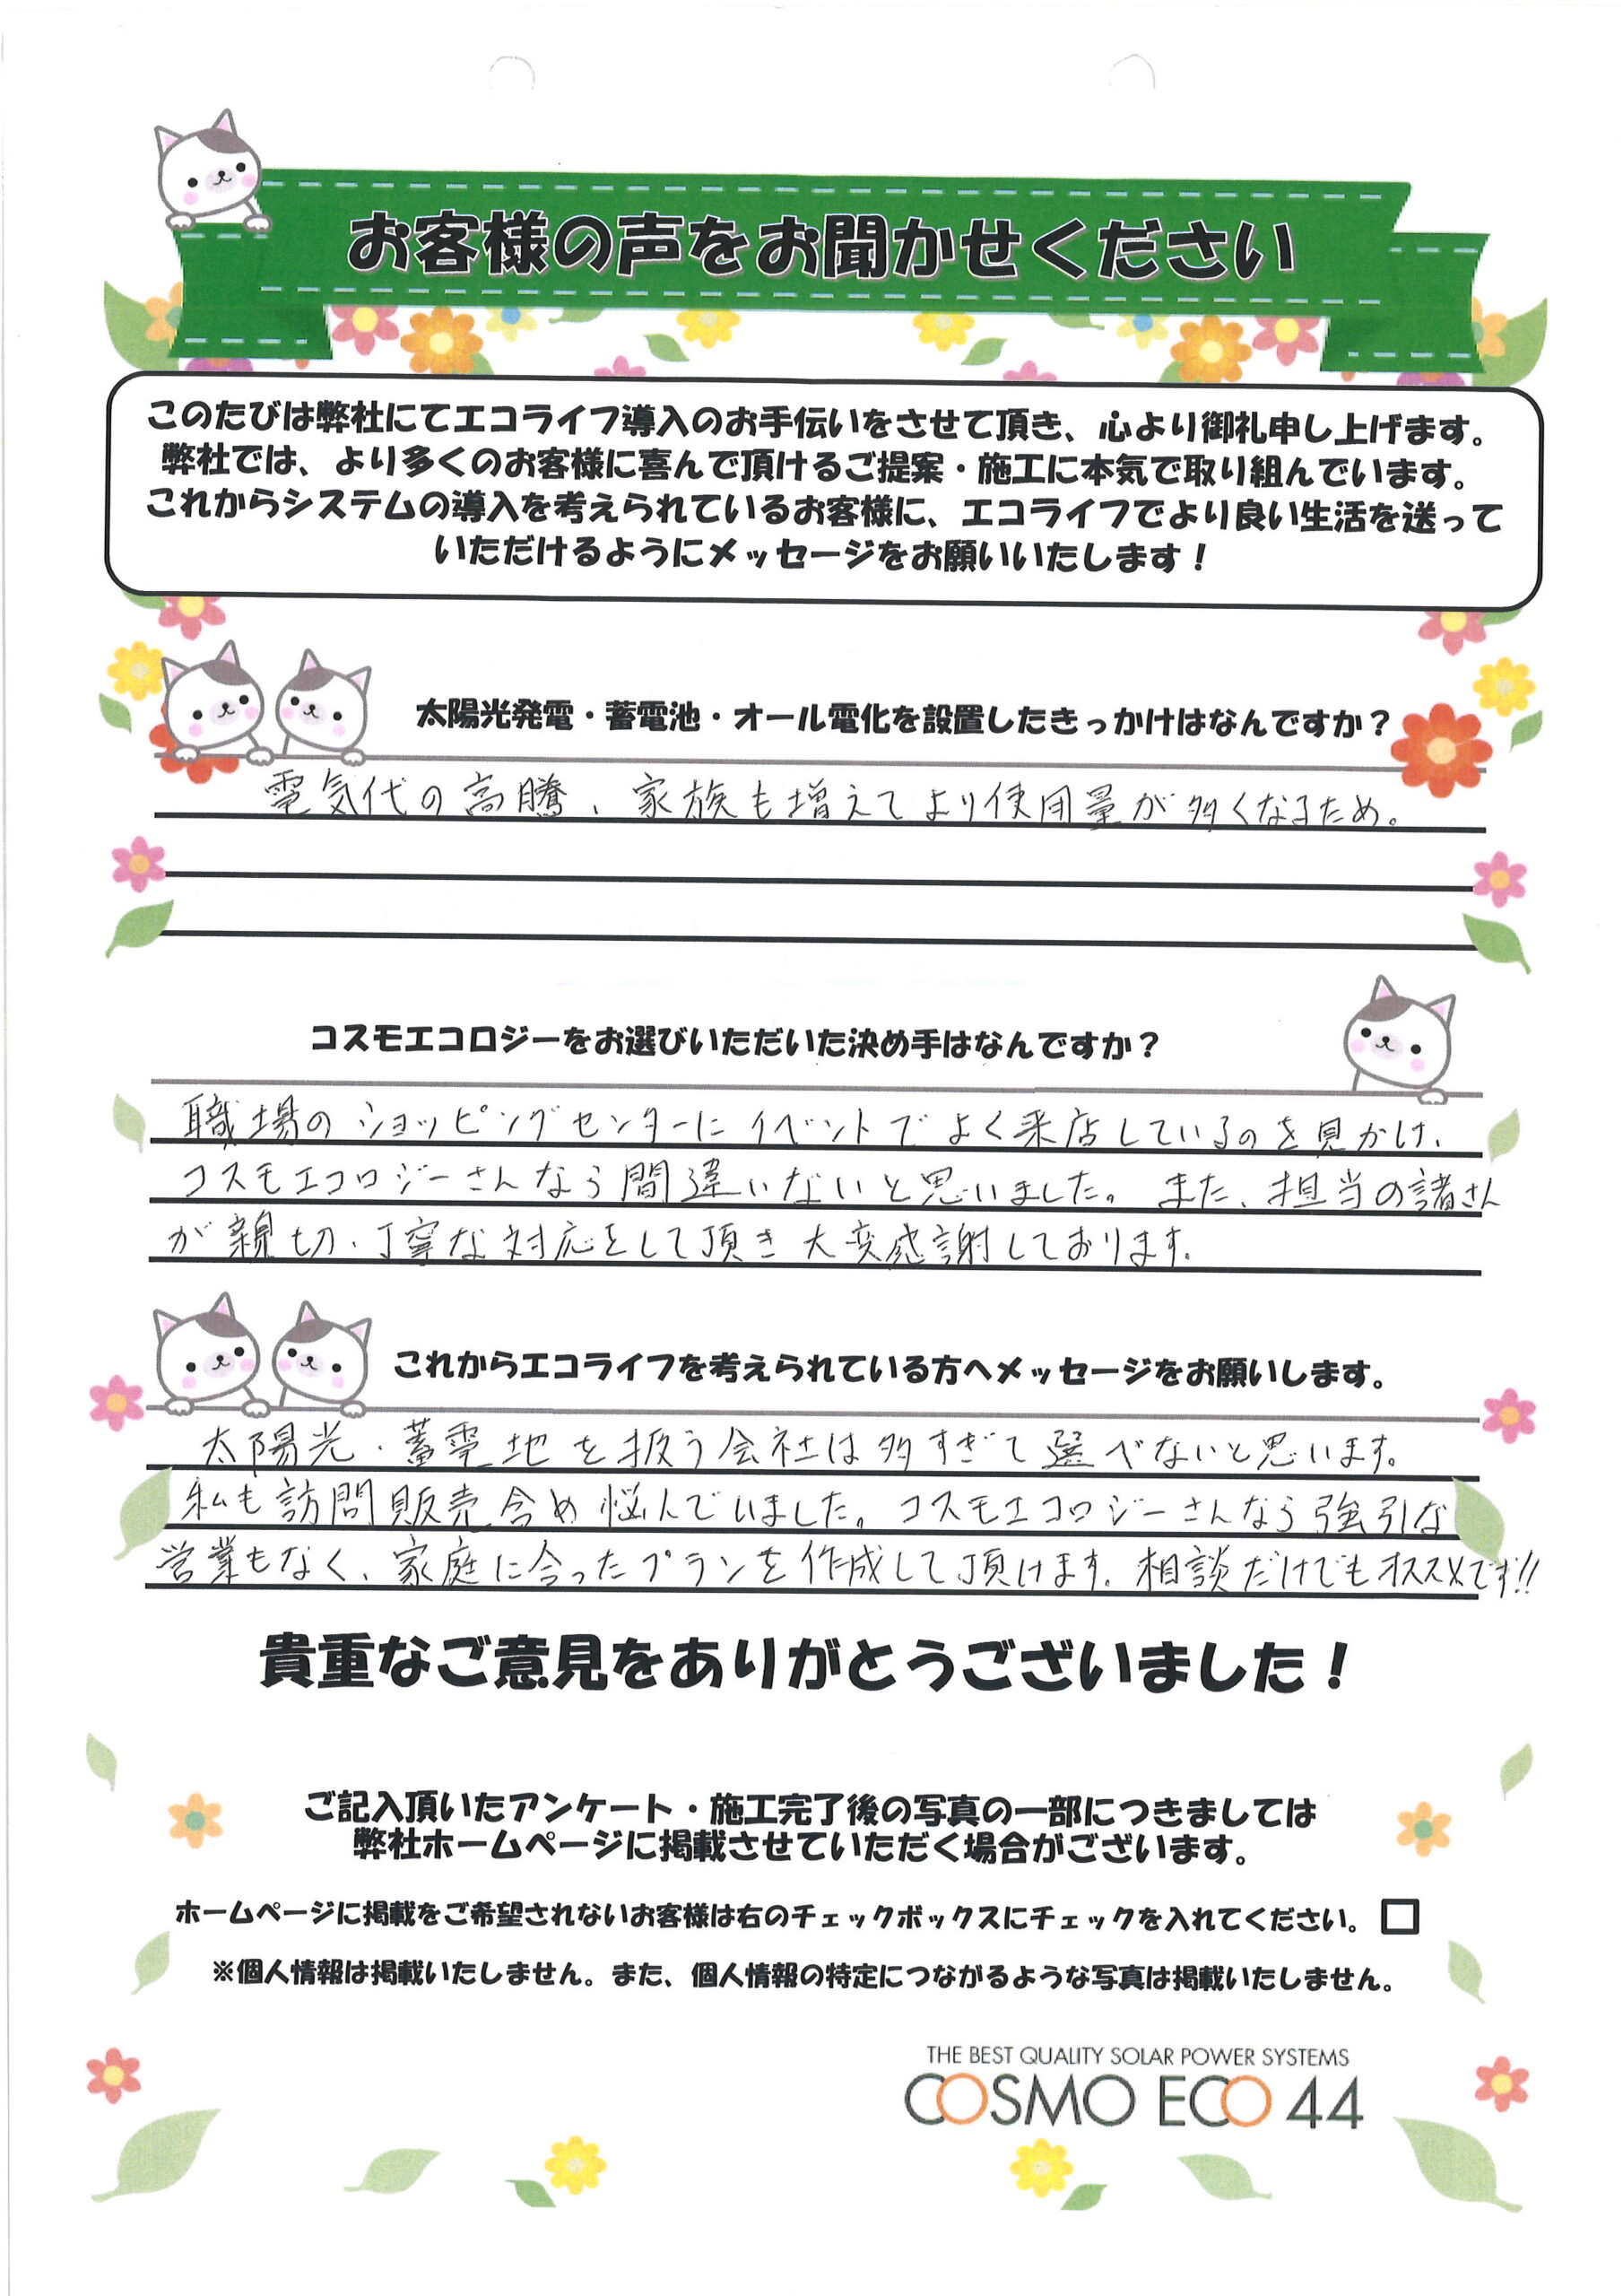 お客様の声をお聞かせください
このたびは弊社にてエコライフ導入のお手伝いをさせて頂き、心より御礼申し上げます。
弊社では、より多くのお客様に喜んで頂けるご提案・施工に本気で取り組んでいます。
これからシステムの導入を考えられているお客様に、エコライフでより良い生活を送って
いただけるようにメッセージをお願いいたします！
太陽光発電・蓄電池・オール電化を設置したきっかけはなんですか？
電気代の高騰、家族も増えてより使用量が多くなるため。
コスモエコロジーをお選びいただいた決め手はなんですか？
職場のショッピングセンターにイベントでよく来店しているのを見かけ、
コスモエコロジーさんなら間違いないと思いました。また、担当の諸さん
が親切、丁寧な対応をして頂き大変感謝しております。
これからエコライフを考えられている方へメッセージをお願いします。
太陽光・蓄電地を扱う会社は多すぎて選べないと思います。
私も訪問販売含め悩んでいました。コスモエコロジーさんなら強引な
営業もなく、家庭に合ったプランを作成して頂けます。相談だけでもオススメです!!
貴重なご意見をありがとうございました！
ご記入頂いたアンケート・施工完了後の写真の一部につきましては
弊社ホームページに掲載させていただく場合がございます。
ホームページに掲載をご希望されないお客様は右のチェックボックスにチェックを入れてください。
※個人情報は掲載いたしません。また、個人情報の特定につながるような写真は掲載いたしません。
THE BEST QUALITY SOLAR POWER SYSTEMS
COSMO ECO 44